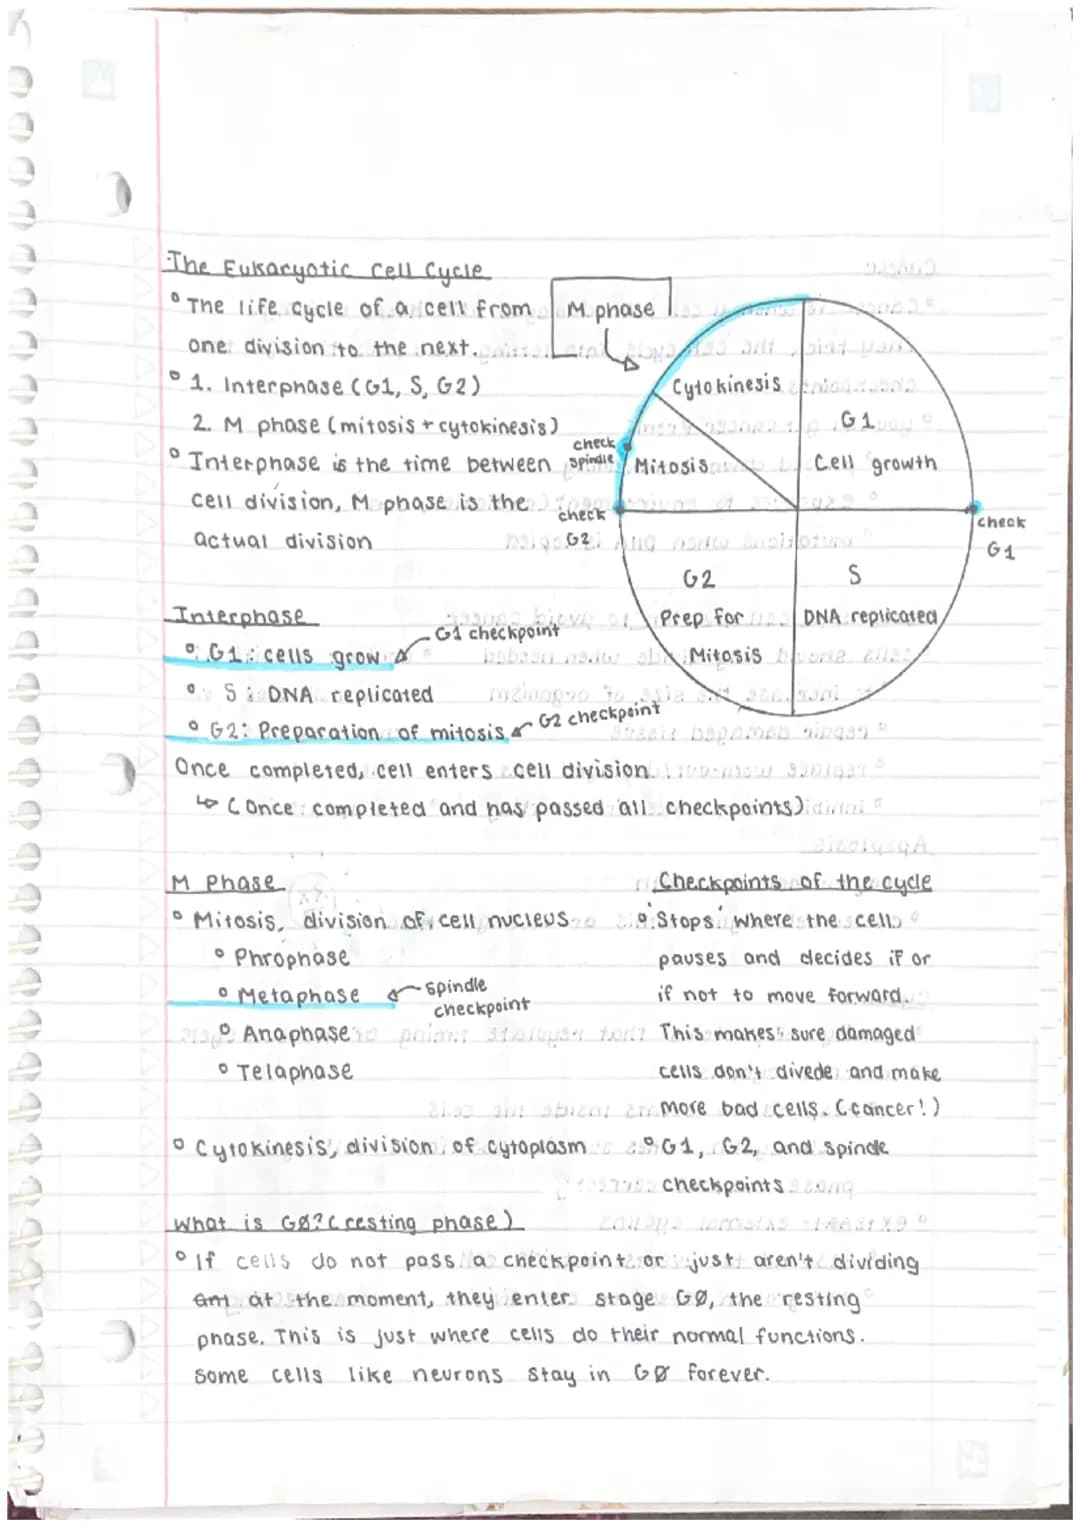 The Eukaryotic Cell Cycle
° The life cycle of a cell from
one division to the next.
° 1. Interphase (G1, S, G2)
2. M phase (mitosis + cytokinesis)
° Interphase is the time between
cell division, M phase is the
actual division
M phase
Cytokinesis
G1
Cell growth
check
spindle
Mitosis
check
G2
check
G1
G2
Prep for
Mitosis
S
DNA replicated
Interphase
° G1: cells grow
G1 checkpoint
° S: DNA replicated
° G2: Preparation of mitosis
G2 checkpoint
Once completed, cell enters cell division
↳ (Once completed and has passed all checkpoints)
M Phase
° Mitosis, division of cell nucleus
° Phrophase
° Metaphase
spindle
checkpoint
° Anaphase
° Telaphase
° Cytokinesis, division of cytoplasm
Checkpoints of the cycle
° 'Stops' where the cell
pauses and decides if or
if not to move forward.
This makes sure damaged
cells don't divede and make
more bad cells. (cancer!)
° G1, G2, and Spindle
checkpoints
What is GØ? (resting phase)
° If cells do not pass a checkpoint or just aren't dividing
at the moment, they enter stage GØ, the resting
phase. This is just where cells do their normal functions.
Some cells like neurons stay in GØ forever.